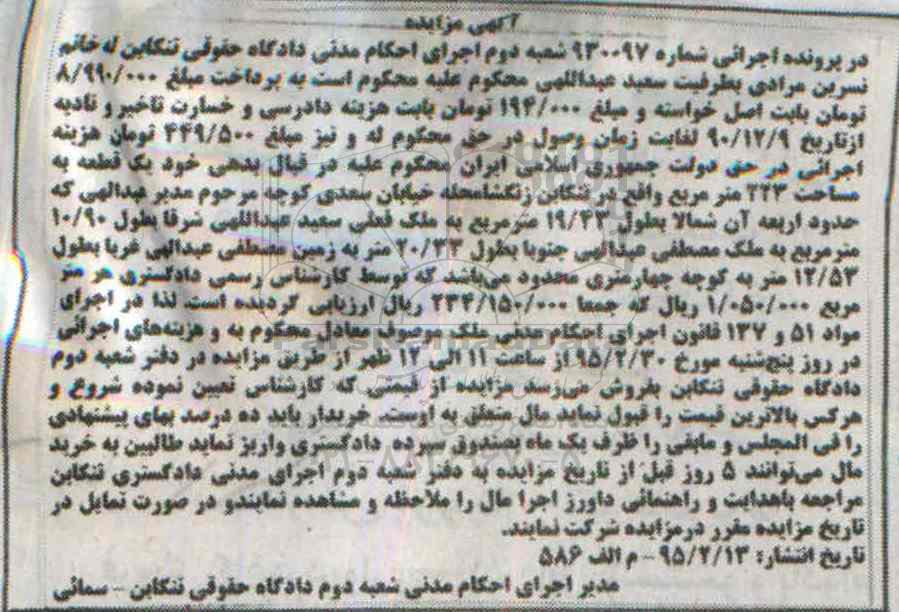 آگهی مزایده
در پرونده اجرائی شماره ۹۳۰۰۹۷ شعبه دوم اجرای احکام مدنی دادگاه حقوقی تنکابن له خانم
نسرین مرادی بطرفیت سعید عبداللهی محکوم علیه محکوم است به پرداخت مبلغ ۸/۹۹۰/۰۰۰
تومان بابت اصل خواسته و مبلغ ۱۹۴/۰۰۰ تومان بابت هزینه دادرسی و خسارت تاخیر و تادیه
ازتاریخ ۹۰/۱۲/۹ لغایت زمان وصول در حق محکوم له و نیز مبلغ ۴۴۹/۵۰۰ تومان هزینه
اجرائی در حق دولت جمهوری اسلامی ایران محکوم علیه در قبال بدهی خود یک قطعه به
مساحت ۲۲۳ متر مربع واقع در تنکابن زنگشامحله خیابان سعدی کوچه مرحوم مدیر عبدالهی که
حدود اربعه آن شمالا بطول ۱۹/۴۳ مترمربع به ملک فعلی سعید عبداللهی شرقا بطول ۱۰/۹۰
مترمربع به ملک مصطفی عبدالهی جنوبا بطول ۲۰/۳۳ متر به زمین مصطفی عبدالهی غربا بطول
۱۲/۵۳ متر به کوچه چهارمتری محدود می‌باشد که توسط کارشناس رسمی دادگستری هر متر
مربع ۱/۰۵۰/۰۰۰ ریال که جمعا ۲۳۴/۱۵۰/۰۰۰ ریال ارزیابی گردیده است لذا در اجرای
مواد ۵۱ و ۱۳۷ قانون اجرای احکام مدنی ملک موصوف معادل محکوم به و هزینه‌های اجرائی
در روز پنج‌شنبه مورخ ۹۵/۲/۳۰ از ساعت ۱۱ الی ۱۲ ظهر از طریق مزایده در دفتر شعبه دوم
دادگاه حقوقی تنکابن بفروش می‌رسد مزایده از قیمتی که کارشناس تعیین نموده شروع و
هرکس بالاترین قیمت را قبول نماید مال متعلق به اوست. خریدار باید ده درصد بهای پیشنهادی
را فی المجلس و مابقی را ظرف یک ماه بصندوق سپرده دادگستری واریز نماید طالبین به خرید
مال می‌توانند ۵ روز قبل از تاریخ مزایده به دفتر شعبه دوم اجرای مدنی دادگستری تنکابن
مراجعه باهدایت و راهنمائی داورز اجرا مال را ملاحظه و مشاهده نمایندو در صورت تمایل در
تاریخ مزایده مقرر درمزایده شرکت نمایند.
تاریخ انتشار: ۹۵/۲/۱۳ - م الف ۵۸۶
مدیر اجرای احکام مدنی شعبه دوم دادگاه حقوقی تنکابن - سمائی